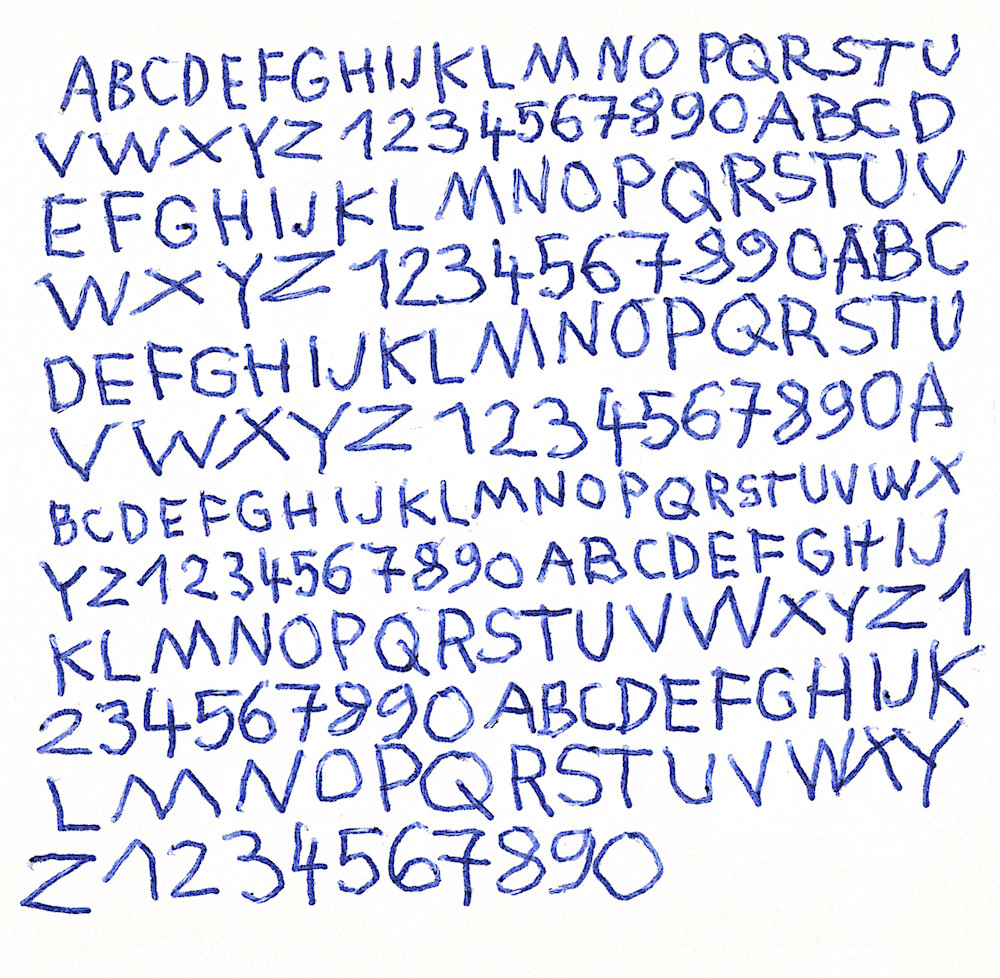 ABCDEFGHIJKLMNOPQRSTU
VWXYZ 1234567890ABCD
EFGHIJKLMNOPQRSTUV
WXYZ 1234567890ABC
DEFGHIJKLMNOPQRSTU
VWXYZ 1234567890A
BCDEFGHIJKLMNOPQRSTUVWX
YZ1234567890 ABCDEFGHIJ
KLMNOPQRSTUVWXYZ1
234567890 ABCDEFGHIJK
LMNOPQRSTUVWXY
Z1234567890